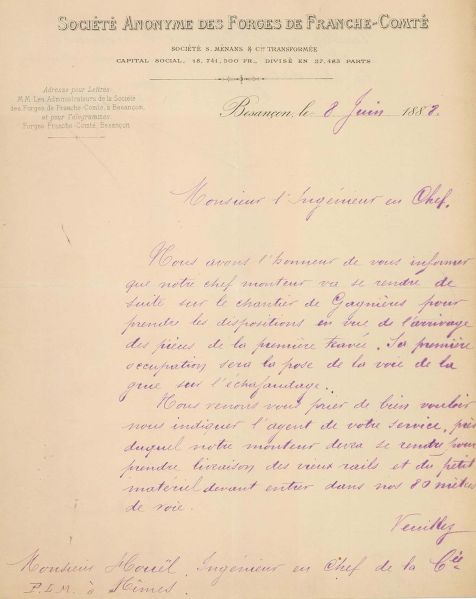 SOCIÉTÉ ANONYME DES FORGES DE FRANCHE-COMTÉ
SOCIÉTÉ S. MENANS & Cie TRANSFORMÉE
CAPITAL SOCIAL, 18,741,500 FR., DIVISÉ EN 37,483 PARTS
Adresse pour Lettres
MM. Les Administrateurs de la Société
des Forges de Franche-Comté, à Besançon,
et pour Télégrammes
Forges Franche-Comté, Besançon
Besançon, le 8 Juin 1883.
Monsieur l'Ingénieur en Chef.
Nous avons l'honneur de vous informer
que notre chef monteur va se rendre de
suite sur le chantier de Gagnières pour
prendre les dispositions en vue de l'arrivage
des pièces de la première travée. Sa première
occupation sera la pose de la voie de la
grue sur l'échafaudage.
Nous venons vous prier de bien vouloir
nous indiquer l'agent de votre service, près
duquel notre monteur devra se rendre pour
prendre livraison des vieux rails et du petit
matériel devant entrer dans nos 80 mètres
de voie.
Veuillez
Monsieur Houël. Ingénieur en Chef de la Cie
P.L.M. à Nîmes.